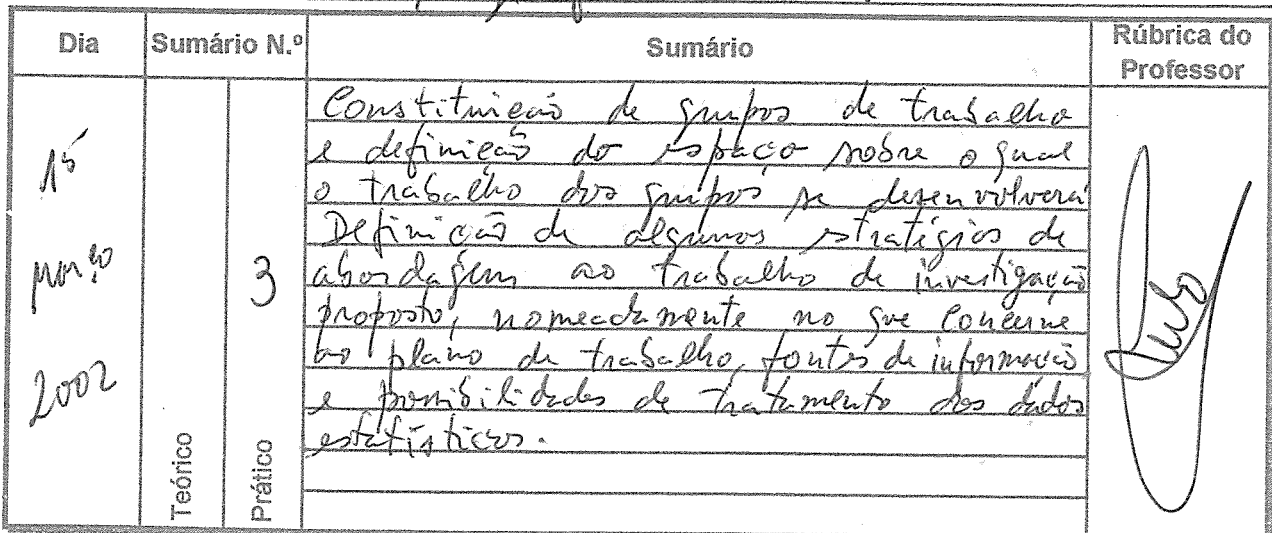 Dia Sumário N.º Sumário Rúbrica do Professor
15
março
2002
Teórico
3
Prático
Constituição de grupos de trabalho
e definição do espaço sobre o qual
o trabalho dos grupos se desenvolverá
Definição de algumas estratégias de
abordagem ao trabalho de investigação
proposto, nomeadamente no que concerne
ao plano de trabalho, fontes de informação
e possibilidades de tratamento dos dados
estatísticos.